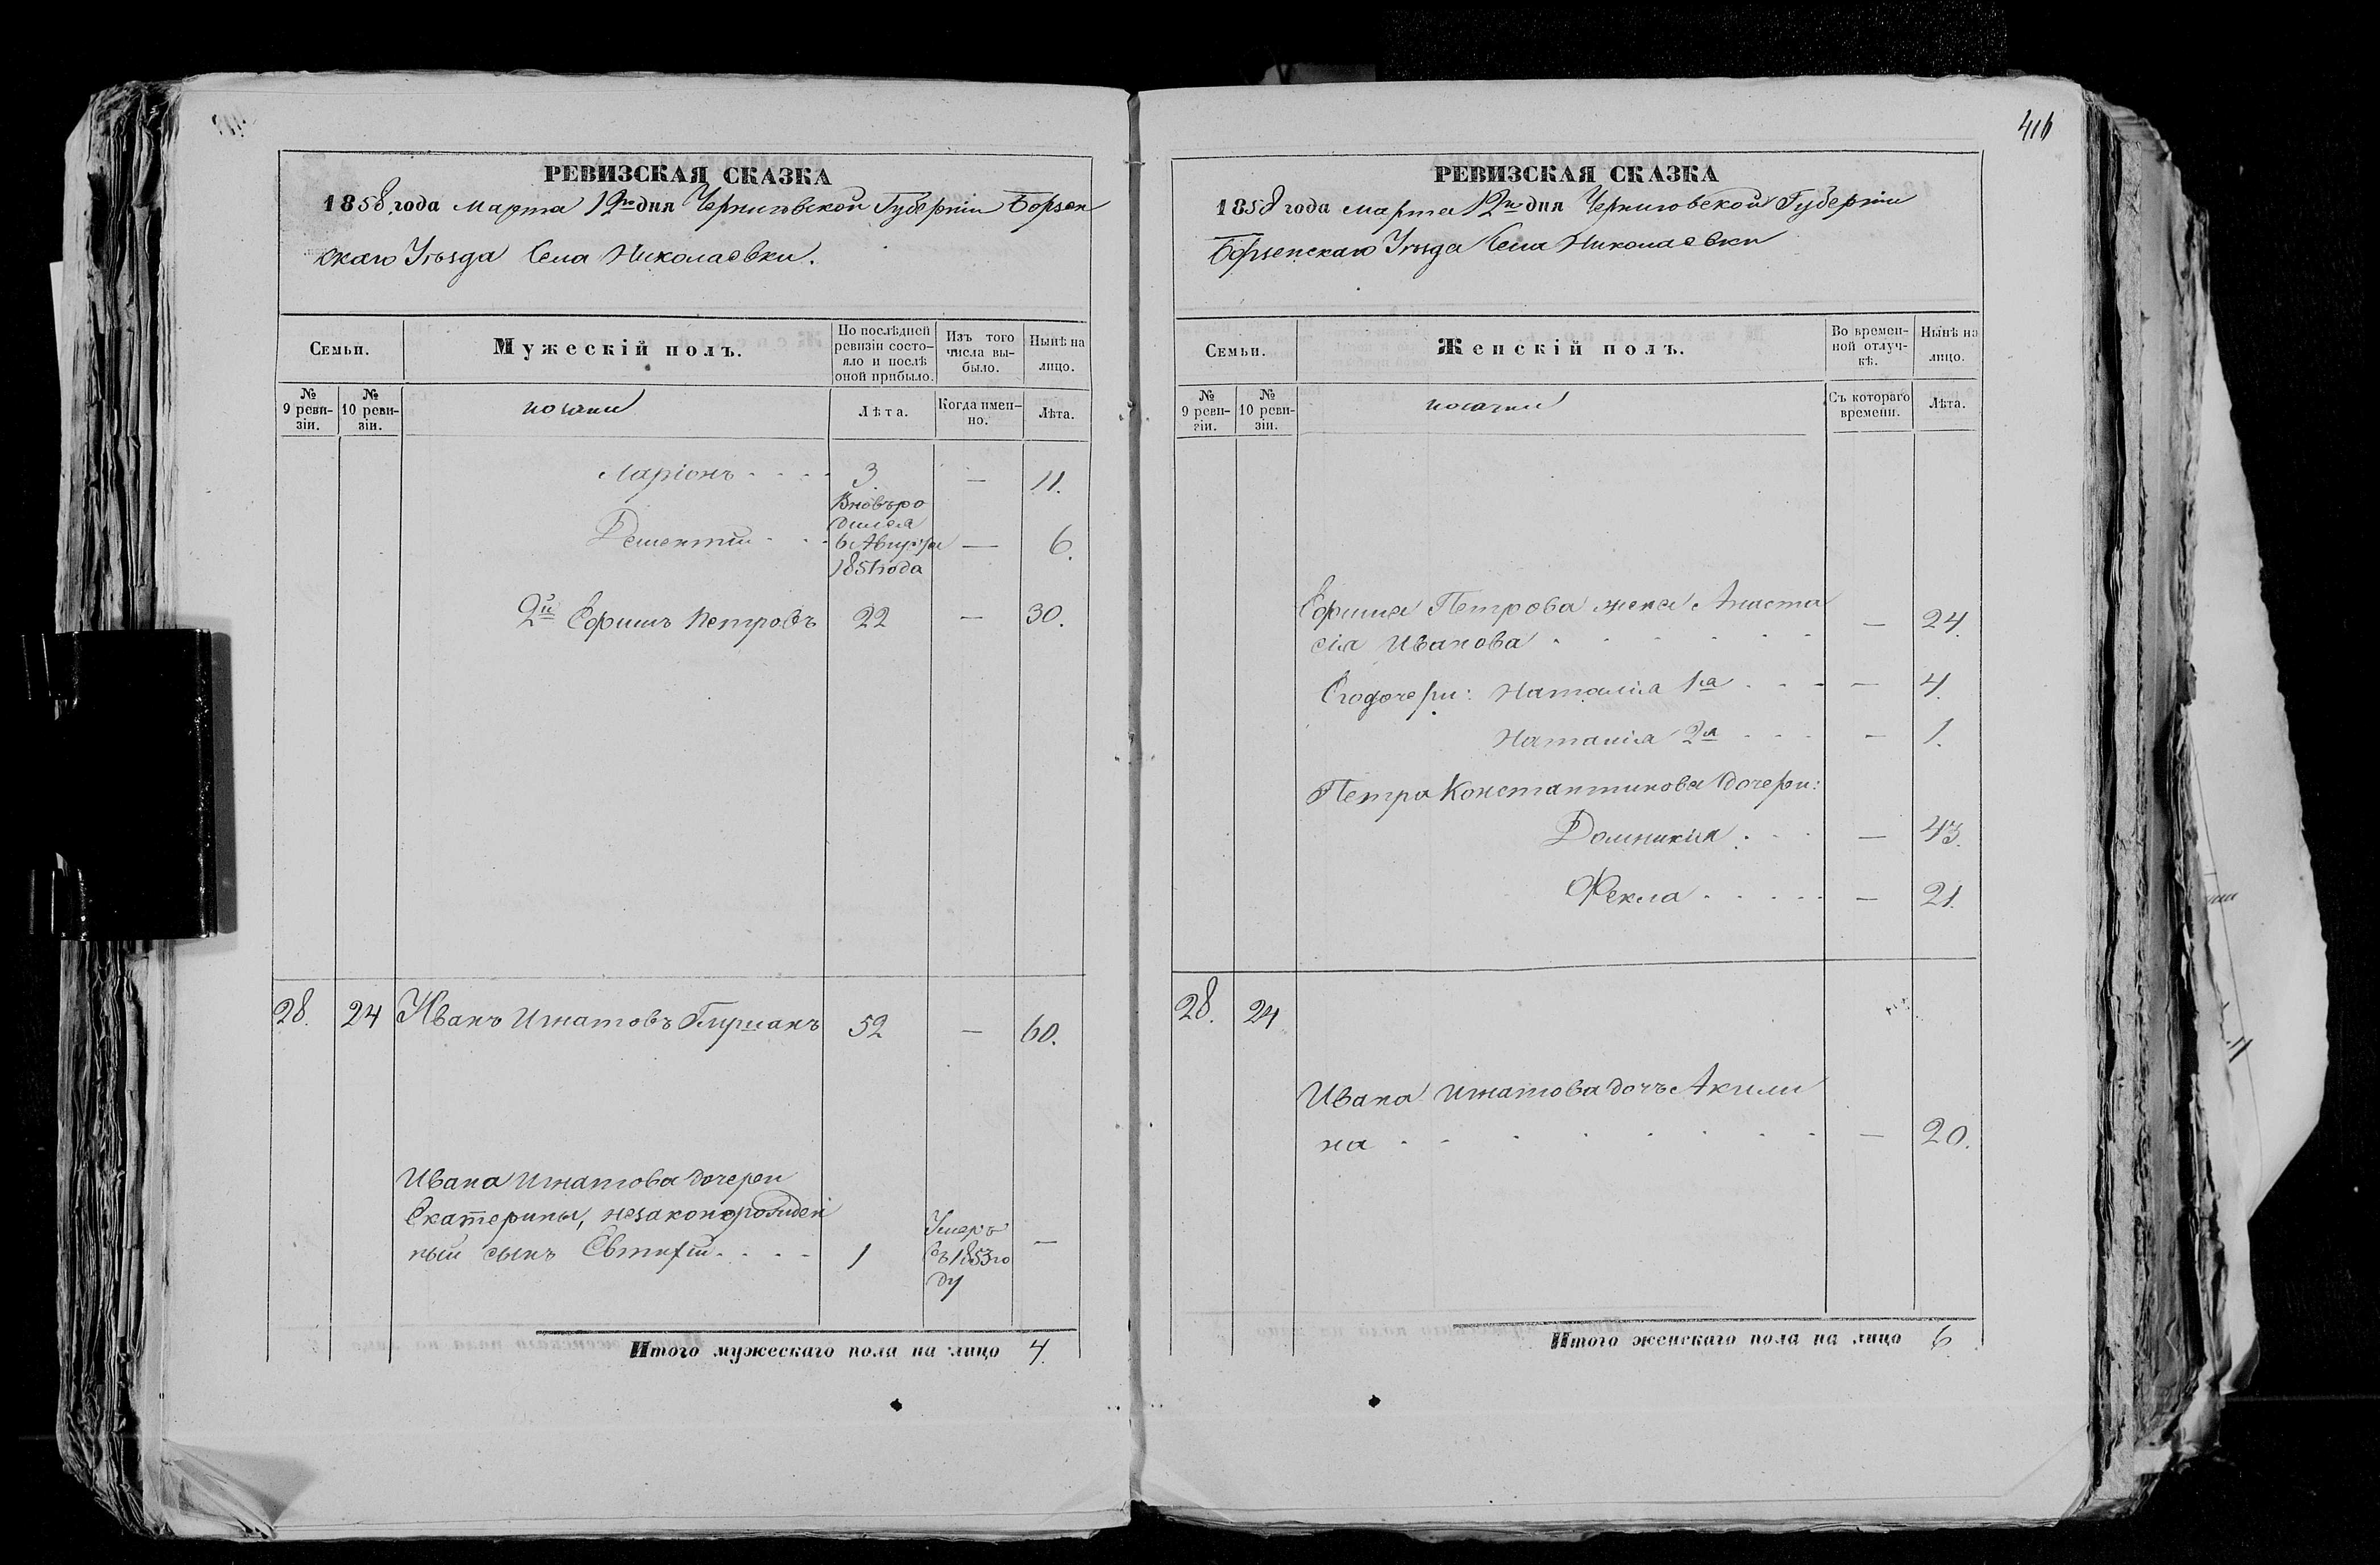 416
РЕВИЗСКАЯ СКАЗКА
1858 года Марта 12го дня Черниговской Губерніи Борзен
скаго Уѣзда Села Николаевки.
Семьи.
Мужескій полъ.
По послѣдней ревизіи состояло и послѣ оной прибыло.
Изъ того числа выбыло.
Нынѣ на лицо.
№ 9 ревизіи.
№ 10 ревизіи.
козаки
Лѣта.
Когда именно.
Лѣта.
Ларіонъ 3 — 11.
Вновь ро
дился
Дементій 6 Августа — 6.
1851 года
2й Ефимъ Петровъ 22 — 30.
28. 24 Иванъ Игнатовъ 52 — 60.
Ивана Игнатова дочери
Екатерины, незаконорожден
ный сынъ Евтихій 1 Умеръ въ 1853 го ду —
Итого мужескаго пола на лицо 4.
РЕВИЗСКАЯ СКАЗКА
1858 года Марта 12го дня Черниговской Губерніи
Борзенскаго Уѣзда Села Николаевки
Семьи.
Женскій полъ.
Во временной отлучкѣ.
Нынѣ на лицо.
№ 9 ревизіи.
№ 10 ревизіи.
козачки
Съ котораго времени.
Лѣта.
Ефима Петрова жена Анаста
сія Иванова — 24.
Его дочери: Наталія 1я — 4.
Наталія 2я — 1.
Петра Константинова дочери:
Домникія — 43.
Фекла — 21.
28. 24
Ивана Игнатова дочь Акили
на — 20.
Итого женскаго пола на лицо 6.